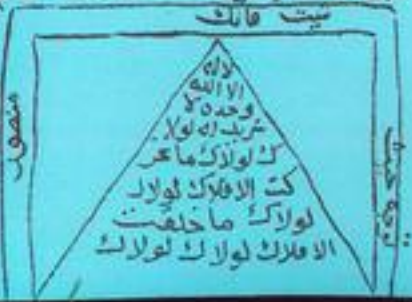 شيت فانك
لا اله
الا الله
وحده لا
شريك له لولا
ك لولاك ما تحر
كت الافلاك لولا
لولاك ما خلقت
الافلاك لولاك لولاك
منصور